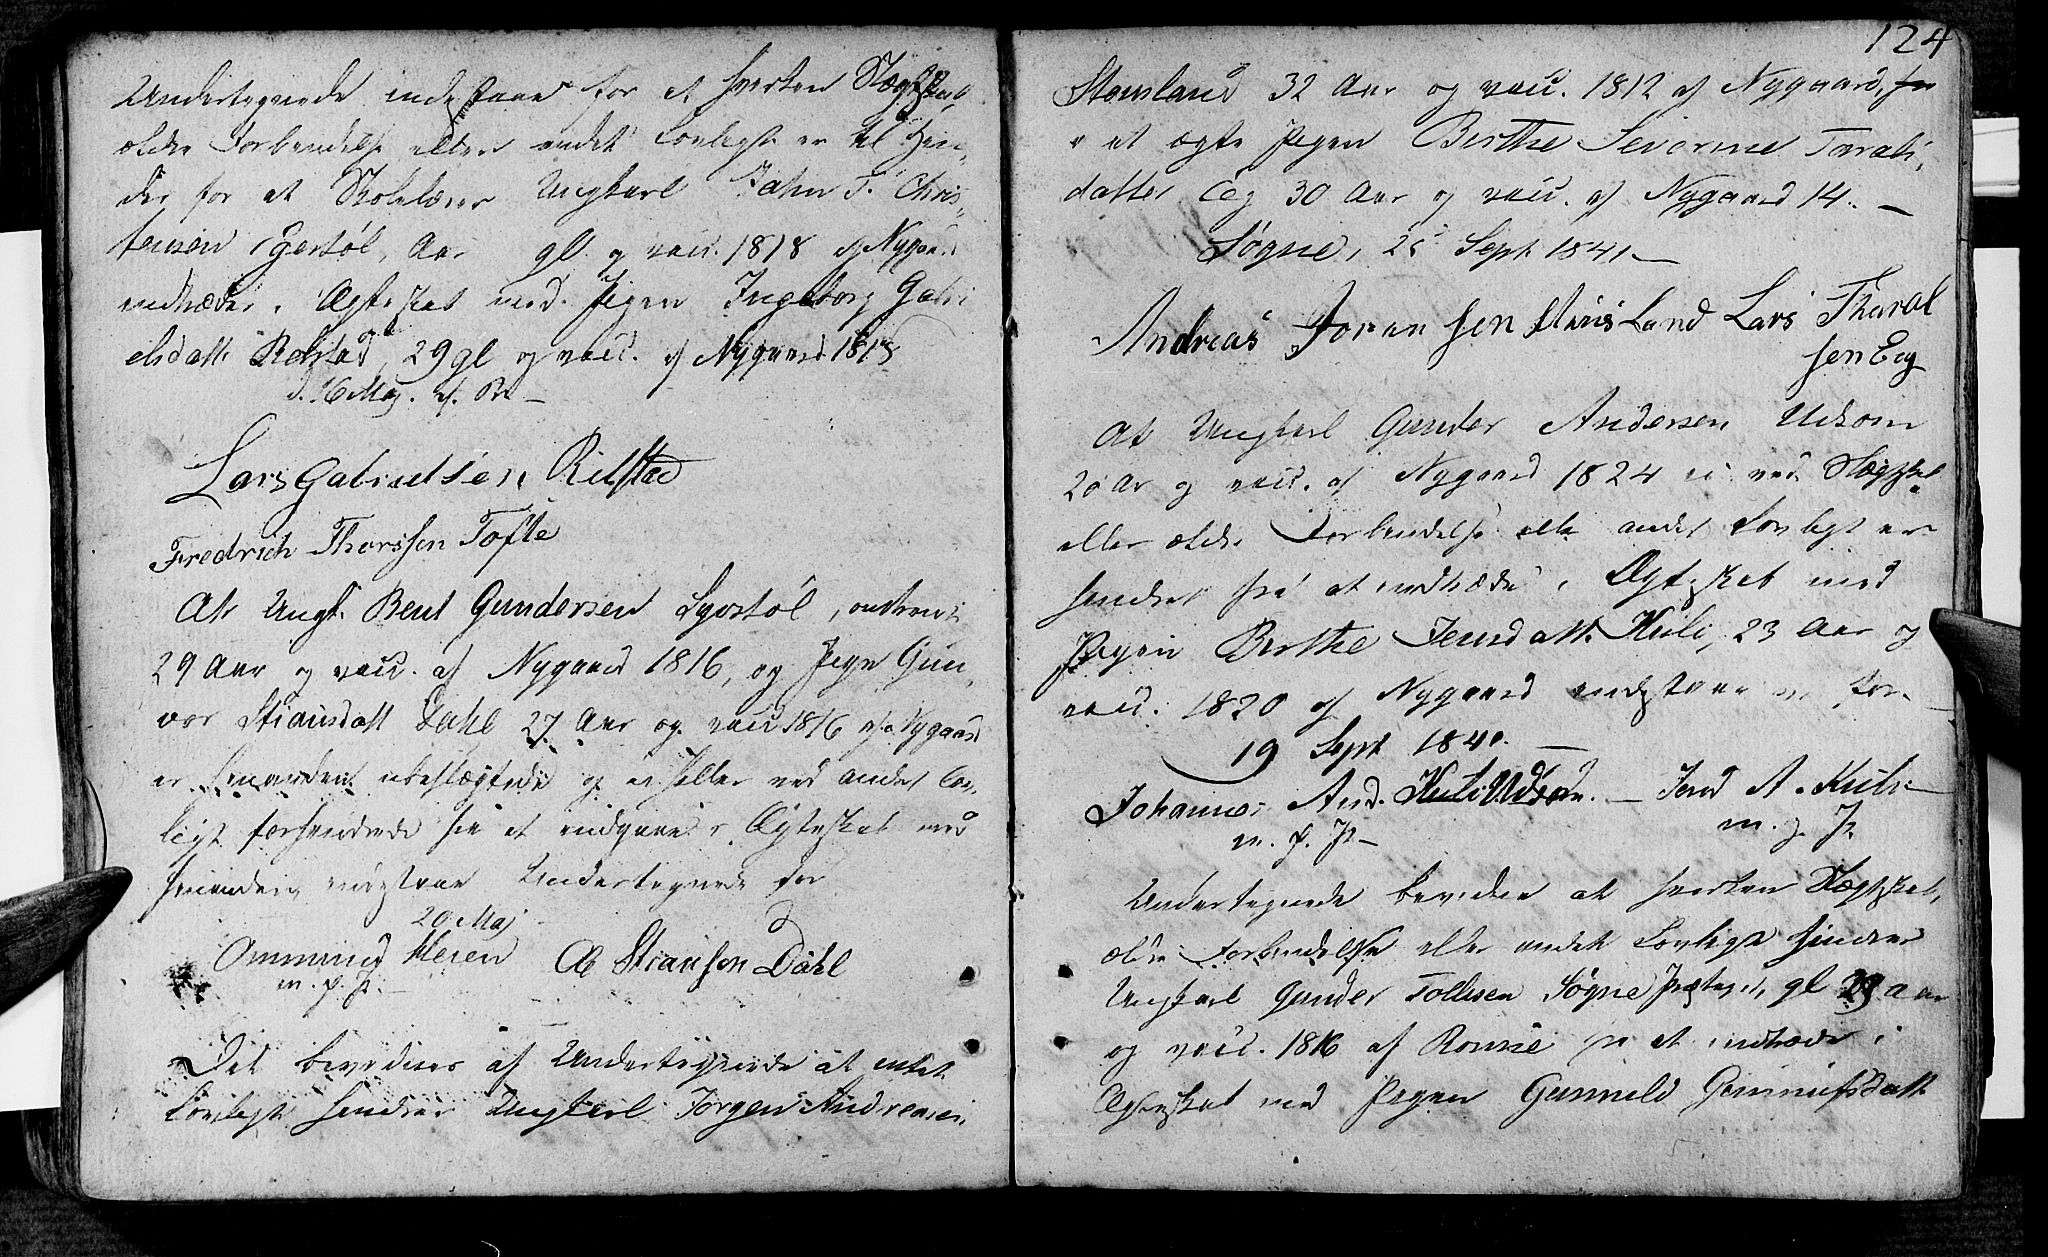 Undertegnede indestaae for at hverken Slægtskab
ældre Forbindelse eller andet Lovligt er til Hin-
der for at Skolelærer Ungkarl Jahn T. Chris-
tensen Egestøl, Aar gl. og vacc. 1818 af Nygaard
indtræder i Ægteskab med Pigen Ingeborg Gabri
elsdatt. Relstad, 29 gl og vacc. af Nygaard 1818
d. 16 Maj.
Lars Gabrielsen Rilstad
Fredrich Thorssen Tofte
At Ungk. Bent Gundersen omtrent
29 Aar og vacc. af Nygaard 1816, og Pige Gun
vor Stiansdatt Dahl 27 Aar og vacc 1816 af Nygaard
er hinanden ubeslægtede og ei heller ved andet Lov-
ligt forhindrede fra at indgaae i Ægteskab med
hinanden, indestaae Undertegnede for
20 Maj
Ommund
m. p. P.
Stiansen Dahl
Det bevidnes af Undertegnede at intet
Lovligt hindrer Ungkarl Jørgen Andreasen
124
Stausland 32 Aar og vacc. 1812 af Nygaard, fra
at ægte Pigen Birthe Severine Tarals-
datter Eeg 30 Aar og vacc. af Nygaard 14. —
Søgne, 25 Sept 1841. —
Andreas Joransen Lars Tharal
sen Eeg
At Ungkarl Gunder Andersen
20 Aar og vacc. af Nygaard 1824 ei ved Slægtskab
eller ældre Forbindelse elle andet Lovligt er
hindret fra at indtræde i Ægteskab med
Pigen Birthe Jensdatt. Kuli, 23 Aar og
vacc. 1820 af Nygaard indestaae vi for.
19 Sept 1841. —
Johannes And. — Jens A. Kuli
m. p. P. —
m. p. P.
Undertegnede bevidne at hverken Slægtskab,
ældre Forbindelse eller andet Lovligt hindrer
Ungkarl Gunder Tollisen Søgne Præstegd, gl 29 Aar
og vacc. 1816 af fra at indtræde i
Ægteskab med Pigen Gunnild Gunnufsdatt